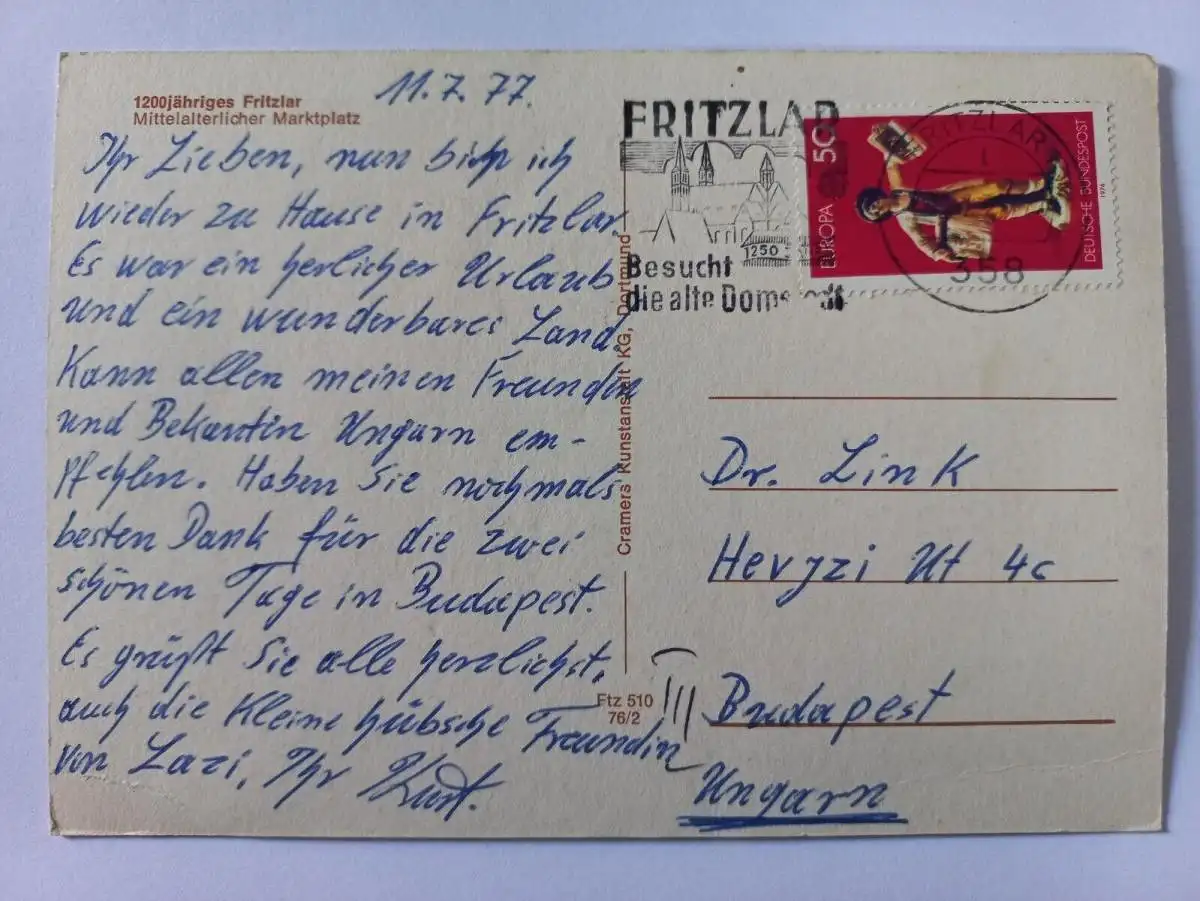 1200jähriges Fritzlar
Mittelalterlicher Marktplatz
11.7.77.
Ihr Lieben, nun bihn ich
wieder zu Hause in Fritzlar.
Es war ein herlicher Urlaub
und ein wunderbares Land.
Kann allen meinen Freundin
und Bekantin Ungarn em-
pfehlen. Haben Sie nochmals
besten Dank für die zwei
schönen Tage in Budapest.
Es grüßt Sie alle herzlichst,
auch die Kleine hübsche Freundin
von Lazi, Ihr Kurt.
Cramers Kunstanstalt KG, Dortmund
Ftz 510
76/2
FRITZLAR
1250
Besucht
die alte Domstadt
EUROPA 50
DEUTSCHE BUNDESPOST
1976
FRITZLAR 1
358
Dr. Link
Hevyzi Ut 4c
III
Budapest
Ungarn